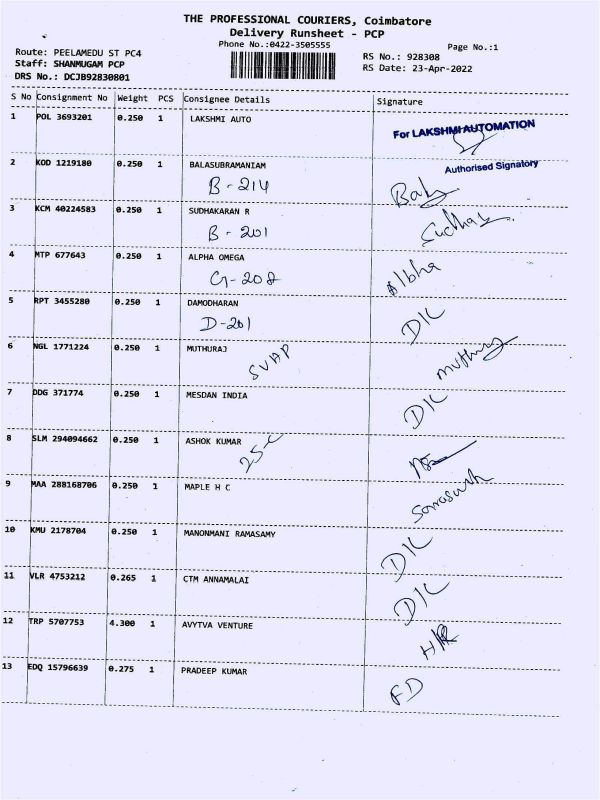 THE PROFESSIONAL COURIERS, Coimbatore
Delivery Runsheet - PCP
Phone No.:0422-3505555
Page No.:1
Route: PEELAMEDU ST PC4
RS No.: 928308
Staff: SHANMUGAM PCP
RS Date: 23-Apr-2022
DRS No.: DCJB92830801
S No Consignment No Weight PCS Consignee Details Signature
1 POL 3693201 0.250 1 LAKSHMI AUTO
For LAKSHMI AUTOMATION
Authorised Signatory
2 KOD 1219180 0.250 1 BALASUBRAMANIAM
B-214
3 KCM 40224583 0.250 1 SUDHAKARAN R
B-201
4 MTP 677643 0.250 1 ALPHA OMEGA
G-208 Albha
5 RPT 3455280 0.250 1 DAMODHARAN
D-201 D/C
6 NGL 1771224 0.250 1 MUTHURAJ
7 DDG 371774 0.250 1 MESDAN INDIA
D/C
8 SLM 294094662 0.250 1 ASHOK KUMAR
9 MAA 288168706 0.250 1 MAPLE H C
10 KMU 2178704 0.250 1 MANONMANI RAMASAMY
D/C
11 VLR 4753212 0.265 1 CTM ANNAMALAI
D/C
12 TRP 5707753 4.300 1 AVYTVA VENTURE
13 EDQ 15796639 0.275 1 PRADEEP KUMAR
FD